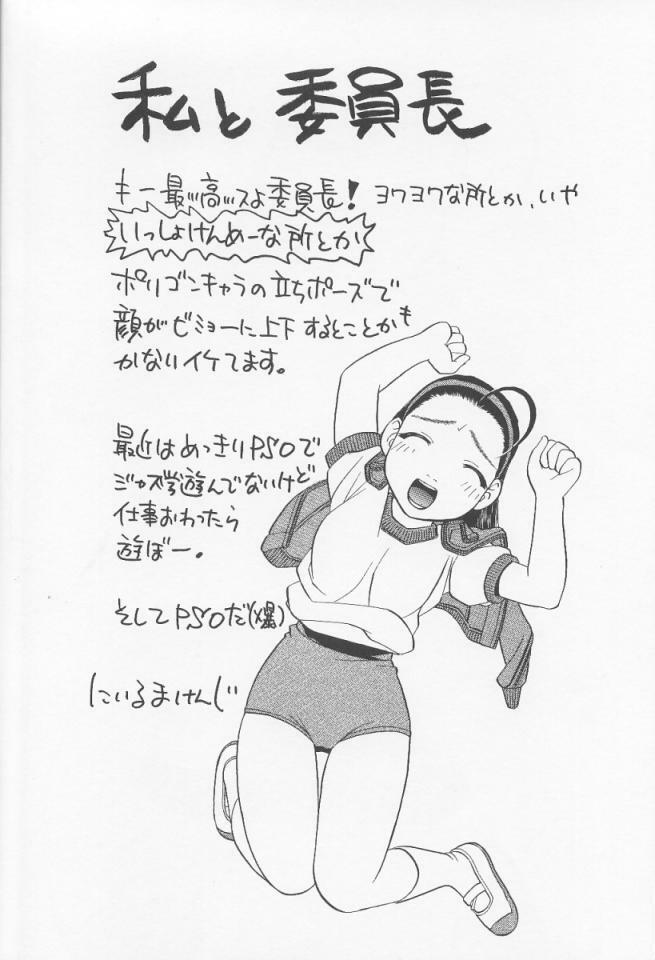 私と委員長
キー最高ッスよ委員長! ヨワヨワな所とか、いや
いっしょけんめーな所とか
ポリゴンキャラの立ちポーズで
顔がビミョーに上下するとことかも
かないイケてます。
最近はめっきりPSOで
遊んでないけど
仕事おわったら
遊ぼー。
そしてPSOだ(爆)
にいるまけんじ